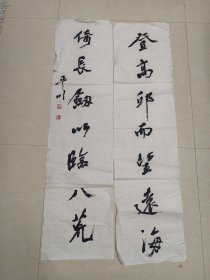 登高邱而望遠海
倚長劍以臨八荒
平川